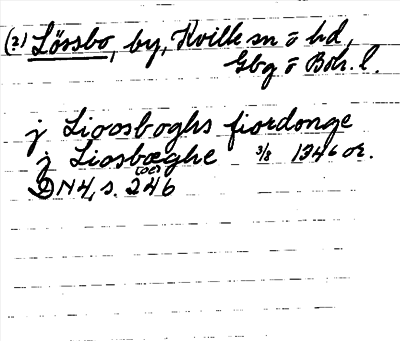 (2) Lössbo, by, Kville sn o hd,
Gbg o Boh. l.
j Lioosboghs fiordonge
j Liosbœghe 3/8 1346 or.
(oe)
DN 4, s. 246